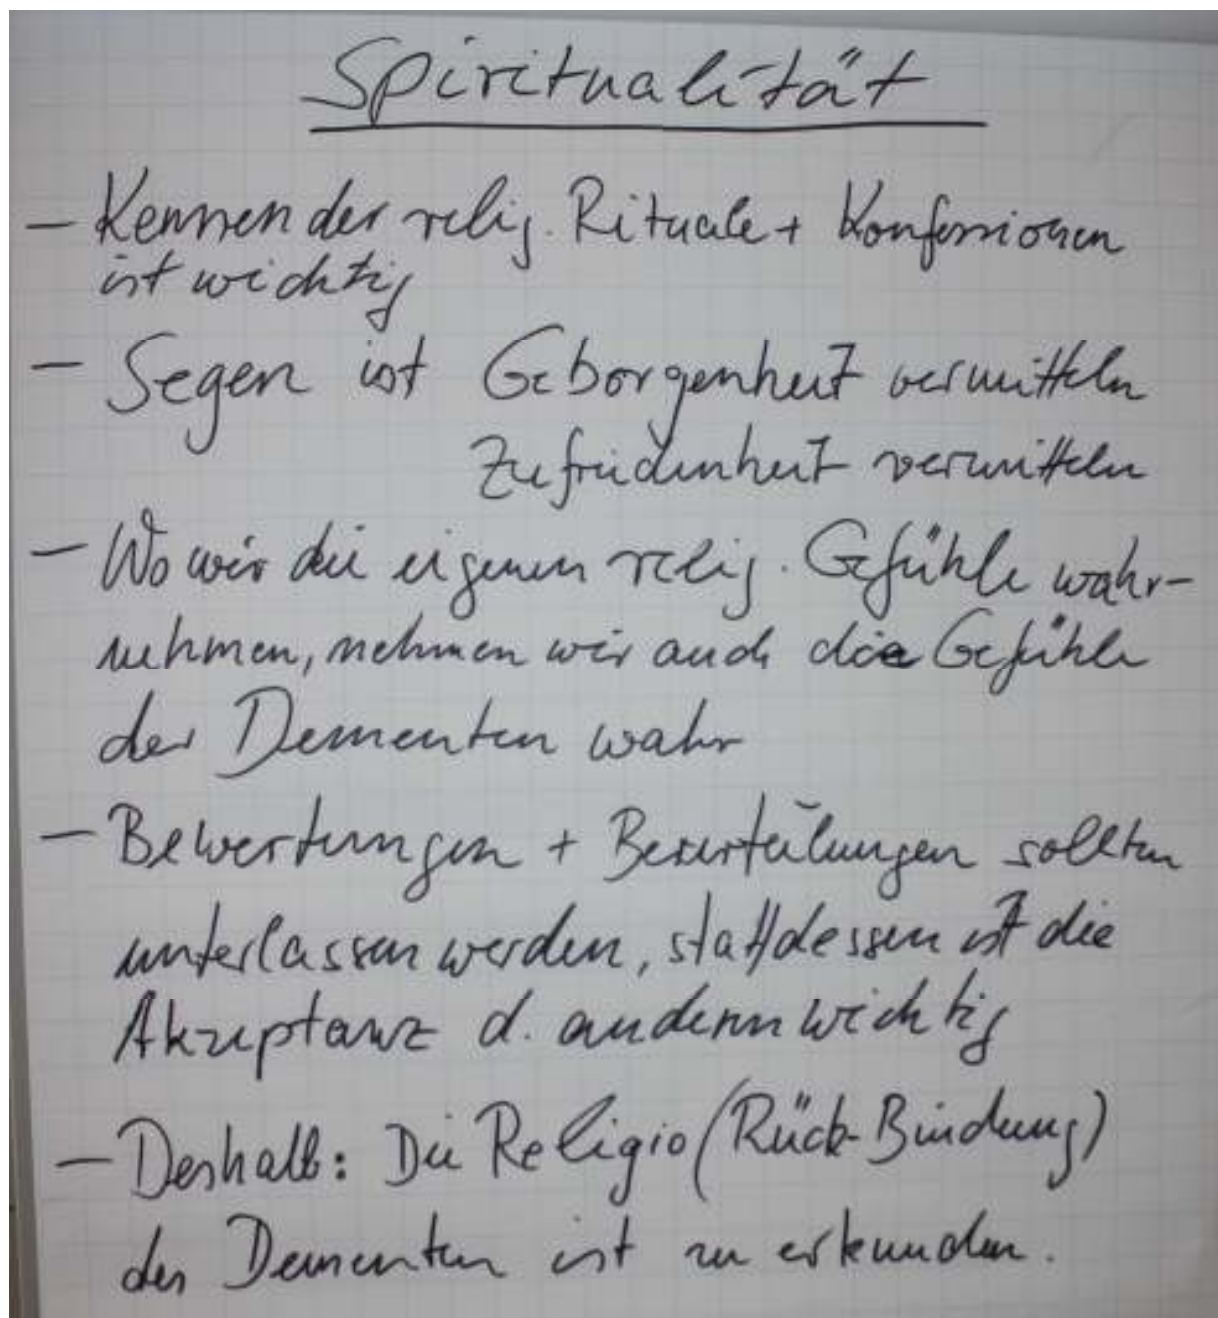 Spiritualität
- Kennen der relig. Rituale + Konfessionen
ist wichtig
- Segen ist Geborgenheit vermitteln
Zufriedenheit vermitteln
- Wo wir die eigenen relig. Gefühle wahr-
nehmen, nehmen wir auch die Gefühle
der Dementen wahr
- Bewertungen + Beurteilungen sollten
unterlassen werden, stattdessen ist die
Akzeptanz d. anderen wichtig
- Deshalb: Die Religio (Rück-Bindung)
des Dementen ist zu erkunden.